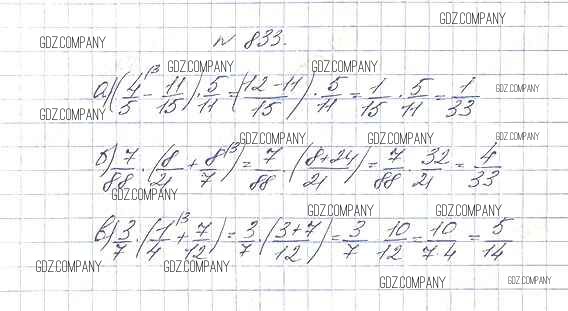 GDZ.COMPANY
GDZ.COMPANY № 833.
GDZ.COMPANY GDZ.COMPANY
а) (4/5^(3 - 11/15) · 5/11 = (12-11/15) · 5/11 = 1/15 · 5/11 = 1/33 GDZ.COMPANY
GDZ.COMPANY
GDZ.COMPANY GDZ.COMPANY GDZ.COMPANY
б) 7/88 · (8/21 + 8/7^(3) = 7/88 · (8+24/21) = 7/88 · 32/21 = 4/33
GDZ.COMPANY
GDZ.COMPANY GDZ.COMPANY
в) 3/7 · (1/4^(3 + 7/12) = 3/7 · (3+7/12) = 3/7 10/12 = 10/7·4 = 5/14
GDZ.COMPANY GDZ.COMPANY
GDZ.COMPANY GDZ.COMPANY